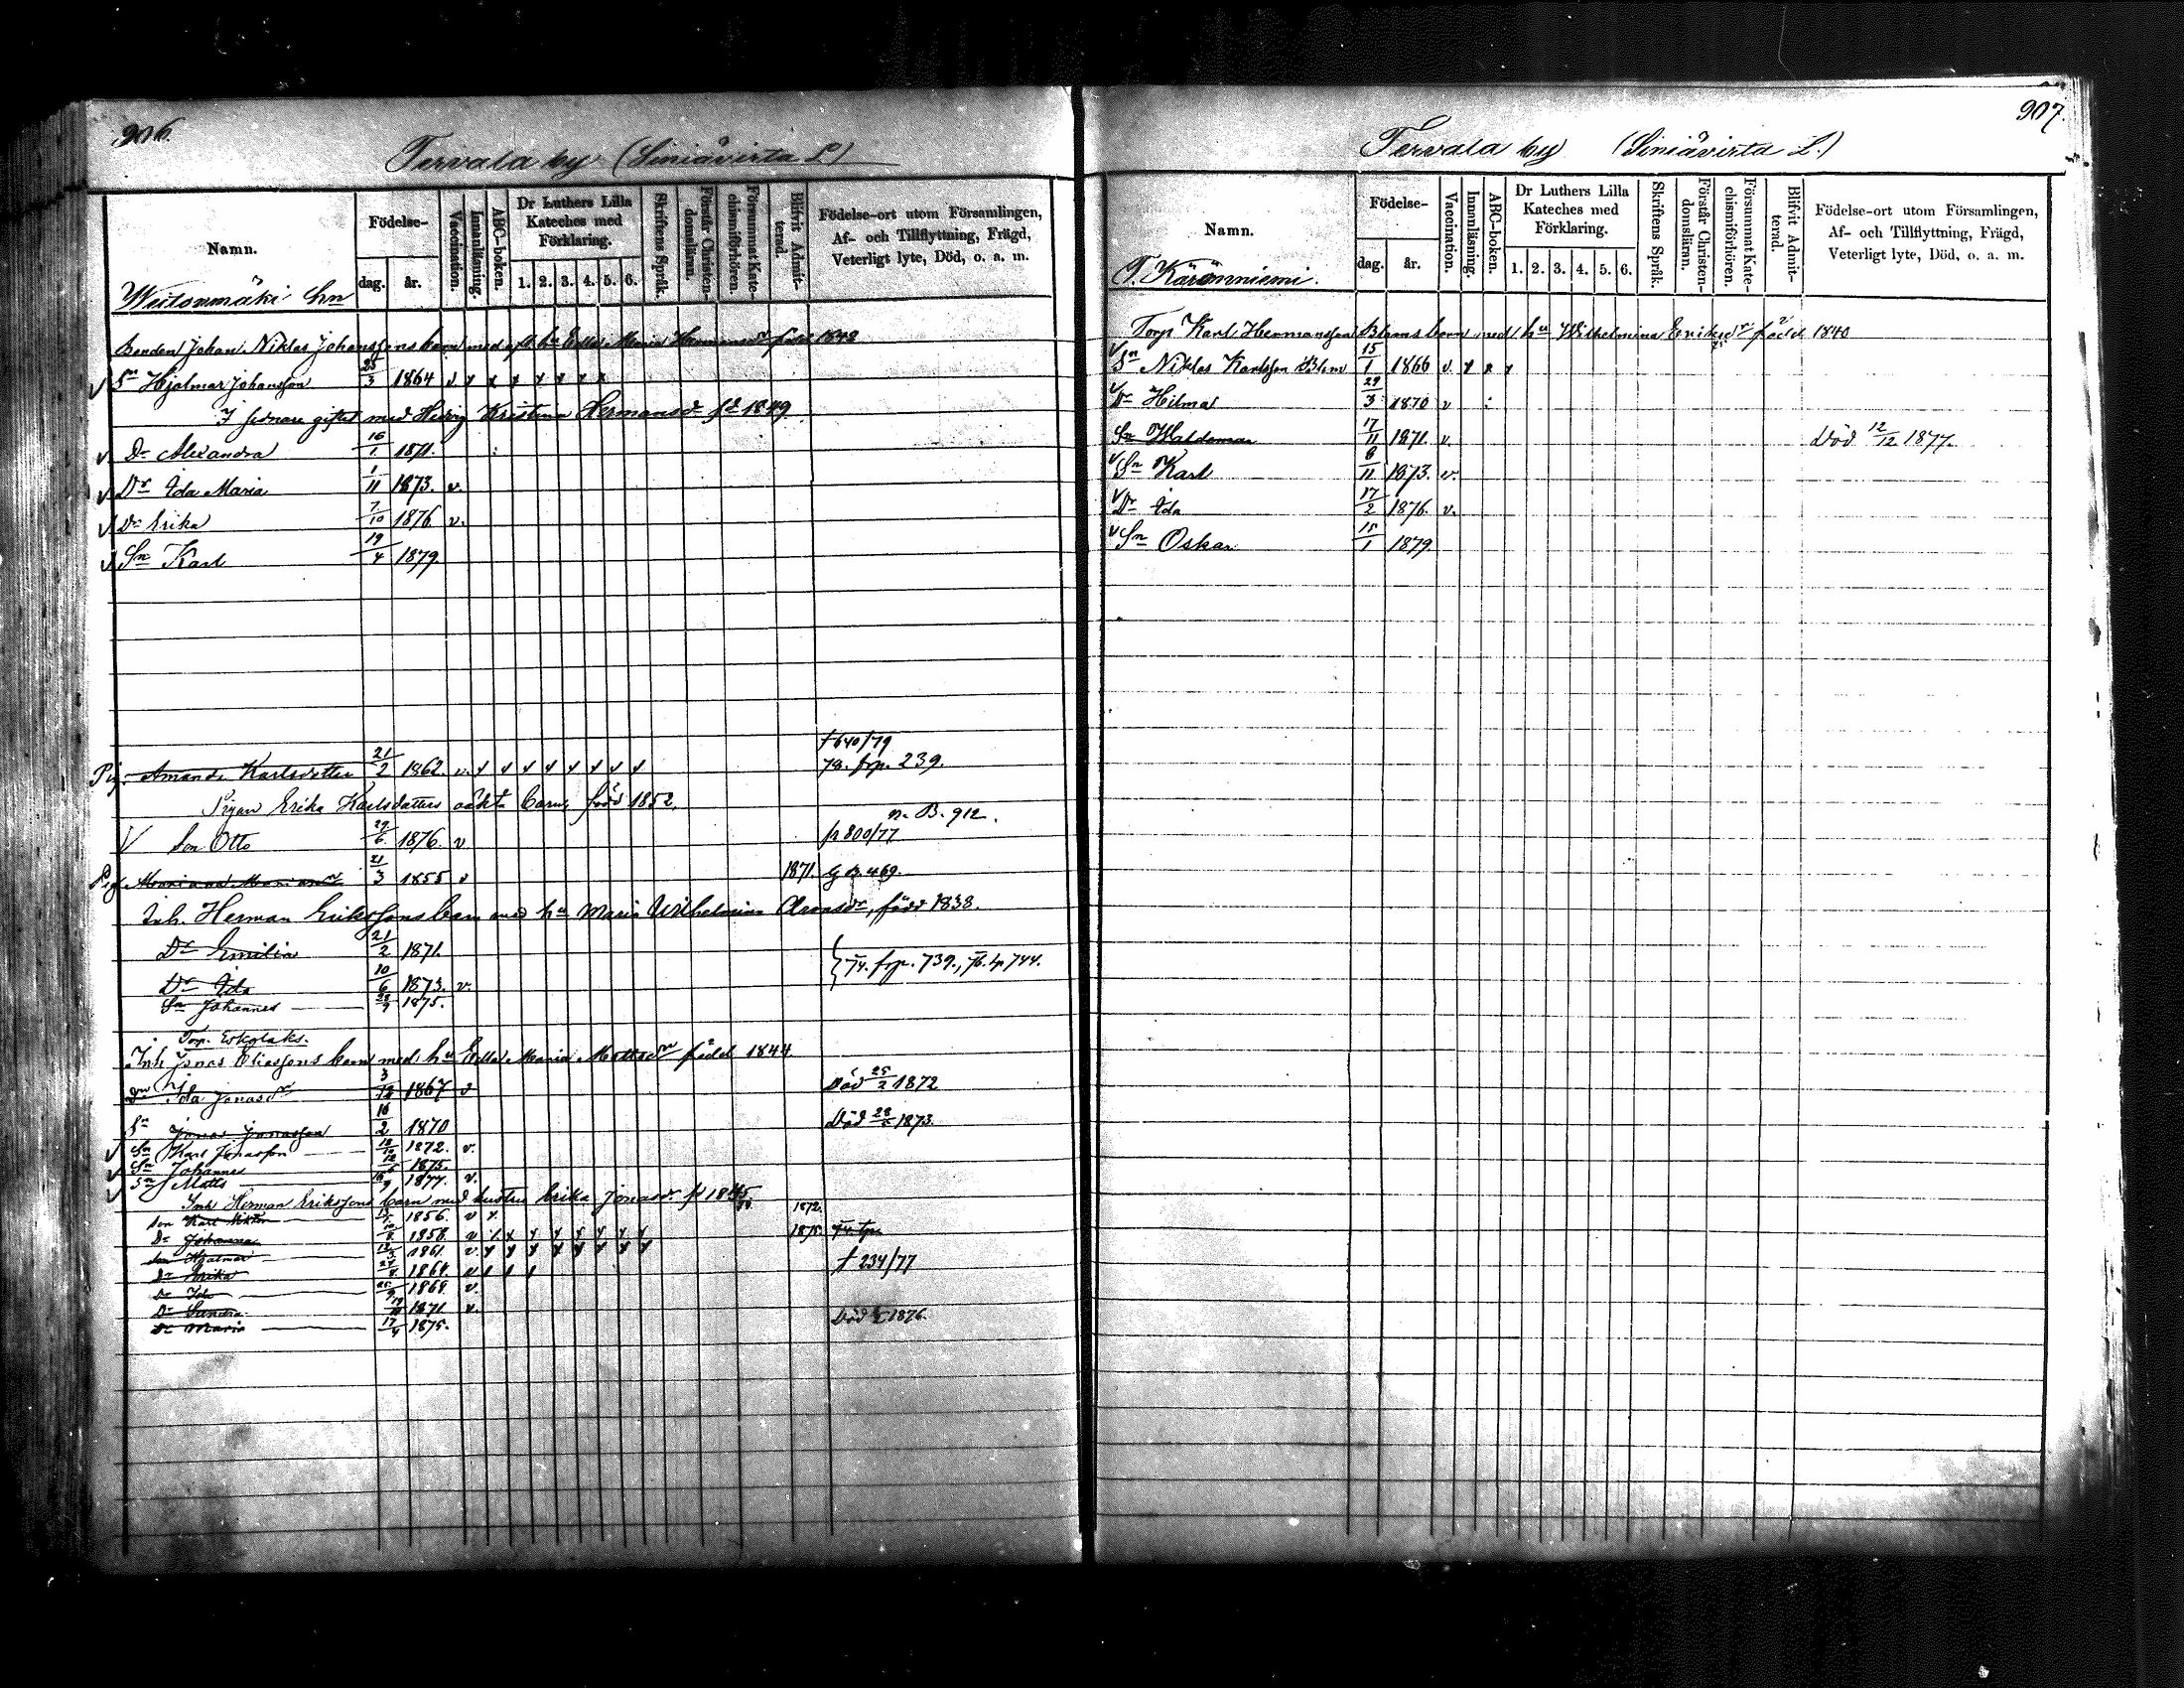 906.
Tervala by (Siniävirta L.)
Namn.
Födelse-
dag.
år.
Vaccination.
Innanläsning.
ABC-boken.
Dr Luthers Lilla
Kateches med
Förklaring.
1. 2. 3. 4. 5. 6.
Skriftens Språk.
Förstår Christen-
domsläran.
Försummat Kate-
chismiförhören.
Blifvit Admit-
terad.
Födelse-ort utom Församlingen,
Af- och Tillflyttning, Frägd,
Veterligt lyte, Död, o. a. m.
Weitonmäki hn
Bonden Johan Niklas Johanssons barn med afl. hu Edla Maria Hermansdr född 1842
v Sn Hjalmar Johansson 25/3 1864 v x x x x x x x
I sednare giftet med Hedvig Kristina Hermansd. fd 1849
v Dr Alexandra 16/1 1871.
v Dr Ida Maria 1/11 1873. v.
v Dr Erika 7/10 1876 v.
v Sn Karl 19/4 1879.
† 640/79
Pig. Amanda Karlsdotter 21/2 1862. v. x x x x x x x x 78. frp. 239.
Pigan Erika Karlsdotters oäkta barn, född 1852.
n. B. 912.
V Son Otto 29/6 1876. v fr 800/77
Pig. 21/3 1855 v 1871. G B. 469.
Inh. Herman Erikssons barn med hu Maria Wilhelmina Aronsdr, född 1838.
Dr Emilia 21/2 1871.
74. frp. 739., 76. tp 744.
Dr Ida 10/6 1873. v.
Sn Johannes 1875.
Torp. Eskolaks.
Inh Jonas Eliassons barn med hu Edla Maria Mattsdr född 1844
Dr Ida Jonasdr 3/12 1867 v Död 25/2 1872
Sn Jonas Jonasson 16/2 1870 Död 1873.
v Sn Karl Jonasson 1872. v.
v Sn Johannes 1875.
v Sn Matts 1877. v.
Inh Herman Erikssons barn med hustru Erika Jonasdr
Son Karl 1856. v x. 1872.
Dr Johanna 1858. v x x x x x x x x 1875.
Son Hjalmar 1861. v. x x x x x x x x
Dr Erika 1864. v † 234/77
Dr Ida 1869. v.
Dr Sandra 1871. v.
Dr Maria 17/4 1875. Död 1876.
907.
Tervala by (Siniävirta L.)
Namn.
Födelse-
dag.
år.
Vaccination.
Innanläsning.
ABC-boken.
Dr Luthers Lilla
Kateches med
Förklaring.
1. 2. 3. 4. 5. 6.
Skriftens Språk.
Förstår Christen-
domsläran.
Försummat Kate-
chismiförhören.
Blifvit Admit-
terad.
Födelse-ort utom Församlingen,
Af- och Tillflyttning, Frägd,
Veterligt lyte, Död, o. a. m.
T. Kärönniemi.
Torp. Karl Hermansson Bloms barn med hu Wilhelmina Eriksdr född 1840
v Sn Niklas Karlsson Blom 15/1 1866 v. x x x
v Dr Hilma 29/3 1870 v :
Sn Waldemar 17/11 1871. v. Död 12/12 1877.
v Sn Karl 6/11 1873. v.
v Dr Ida 17/2 1876. v.
v Sn Oskar 15/1 1879.